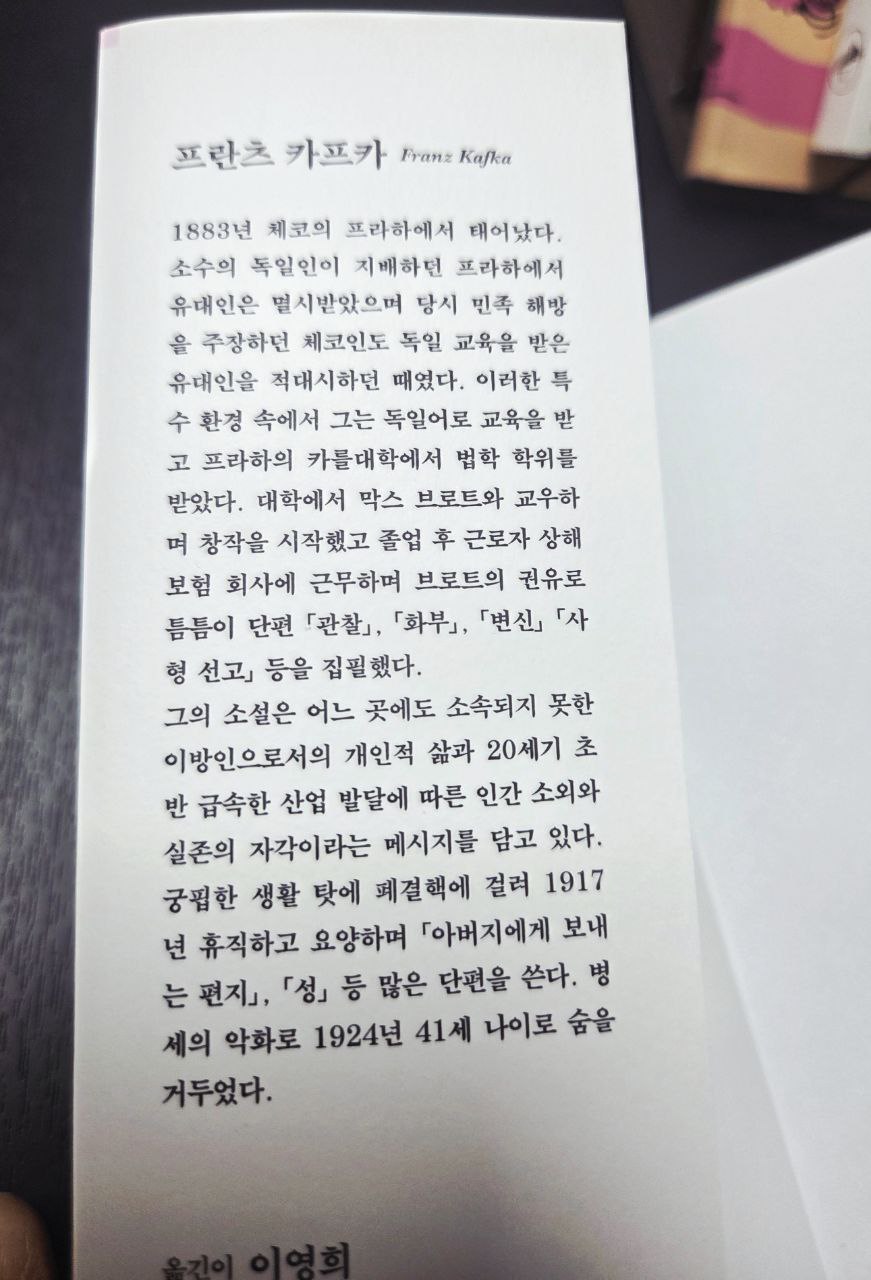 프란츠 카프카 Franz Kafka
1883년 체코의 프라하에서 태어났다.
소수의 독일인이 지배하던 프라하에서
유대인은 멸시받았으며 당시 민족 해방
을 주장하던 체코인도 독일 교육을 받은
유대인을 적대시하던 때였다. 이러한 특
수 환경 속에서 그는 독일어로 교육을 받
고 프라하의 카를대학에서 법학 학위를
받았다. 대학에서 막스 브로트와 교우하
며 창작을 시작했고 졸업 후 근로자 상해
보험 회사에 근무하며 브로트의 권유로
틈틈이 단편 「관찰」, 「화부」, 「변신」 「사
형 선고」 등을 집필했다.
그의 소설은 어느 곳에도 소속되지 못한
이방인으로서의 개인적 삶과 20세기 초
반 급속한 산업 발달에 따른 인간 소외와
실존의 자각이라는 메시지를 담고 있다.
궁핍한 생활 탓에 폐결핵에 걸려 1917
년 휴직하고 요양하며 「아버지에게 보내
는 편지」, 「성」 등 많은 단편을 쓴다. 병
세의 악화로 1924년 41세 나이로 숨을
거두었다.
옮긴이 이영희